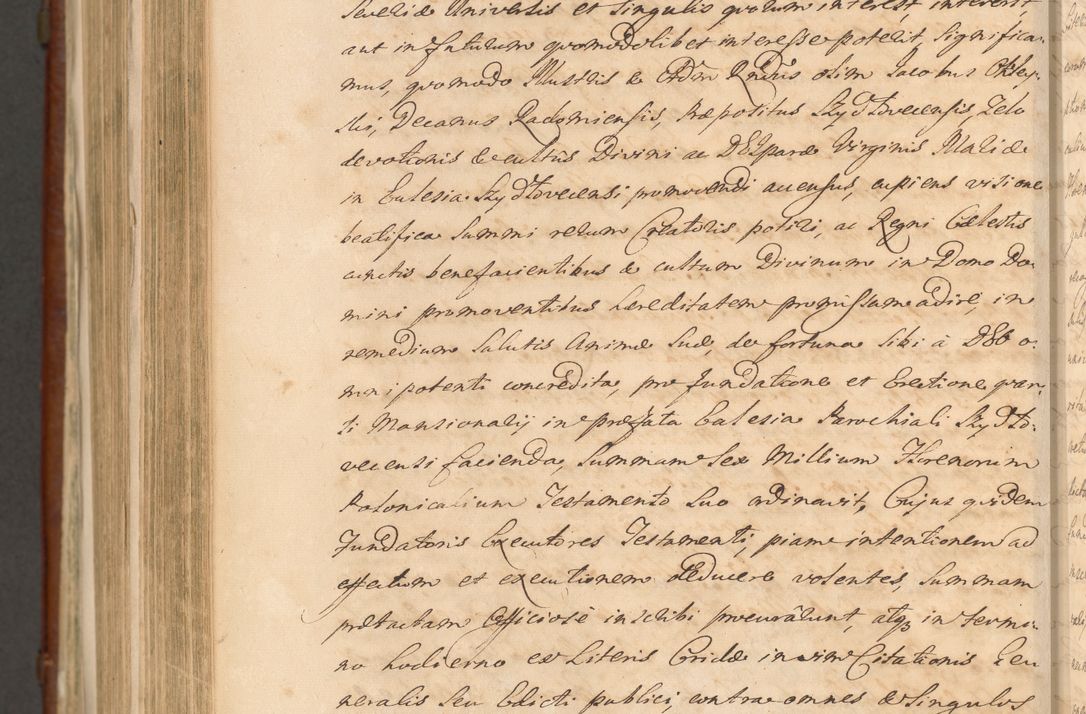 Severiæ Universis et Singulis quorum interest, intererit
aut in futurum quomodolibet interesse poterit, Significa-
mus, quomodo Illustris & Adm Rndus olim Jacobus
ski, Decanus Radomiensis, Præpositus Szydłovecensis, Zelo
devotionis & cultus Divini ac DEIparæ Virginis Mariæ
in Eclesia Szydłovecensi promovendi accensus, cupiens visione
beatifica Summi rerum Creatoris potiri, ac Regni Cælestis
cunctis benefacientibus & cultum Divinum in Domo Do-
mini promoventibus hereditatem promissam adire, in
remedium Salutis Animæ Suæ, de fortuna Sibi â DEO o-
mnipotenti concredita, pro fundatione et Erectione quar-
ti Mansionarij in præfata Eclesia Parochiali Szydło-
vecensi facienda, Summam Sex Millium Florenorum
Polonicalium Testamento Suo ordinavit, Cujus quidem
Fundatoris Executores Testamenti, piam intentionem ad
effectum et executionem deducere volentes, Summam
prætactam Officiosè inscribi procurârunt, atq3 in termi-
no hodierno ex Literis Cridæ in vim Citationis Gen
neralis Seu Edicti publici, contra omnes & Singulos